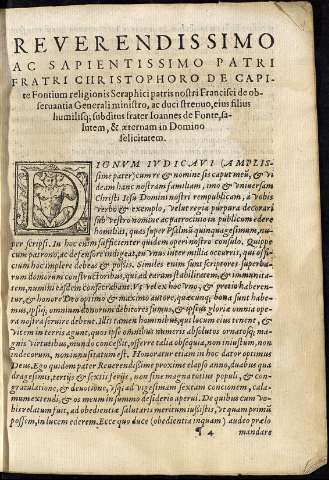 REVERENDISSIMO
AC SAPIENTISSIMO PATRI
FRATRI CHRISTOPHORO DE CAPI-
te Fontium religionis Seraphici patris nostri Francisci de ob-
seruantia Generali ministro, ac duci strenuo, eius filius
humilisq; subditus frater Ioannes de Fonte, sa-
lutem, & æternam in Domino
felicitatem.
DIGNVM IVDICAVI (AMPLIS-
sime pater) cum re & nomine sis caput meū, & vi
deam hanc nostram familiam, imo & vniuersam
Christi Iesu Domini nostri rempublicam, à vobis
verbo & exemplo, velut regia purpura decorari
sub vestro nomine ac patrocinio in publicum edere
homilias, quas super Psalmū quinquagesimum, nu-
per scripsi. In hoc enim sufficienter quidem operi nostro consulo. Quippe
cum patrono, ac defensore indigeat, eū vnus inter millia occurris, qui offi-
cium hoc implere debeas & possis. Similes enim suas scriptores superbis-
rum domorum constructoribus, qui ad æternā stabilitatem, & immunita-
tem, numini easdem consecrabant. Vt velex hoc vno, & pretio haberen-
tur, & honore Deo optimo & maximo autore, quæcunq; bona sunt habe-
mus, ipsiq; omnium donorum debitores sumus, & ipsius gloria omnia ope-
ra nostra seruire debent. Illi tamen hominibus, qui locum eius tenent, &
vitem in terris agunt, quos ipse omnibus numeris absolutos ornatosq; ma-
gnis virtutibus, mundo concessit, offerre talia obsequia, non iniustum, non
indecorum, non inusitatum est. Honoratur etiam in hoc dator optimus
Deus. Ego quidem pater Reuerendissime proxime elapso anno, duabus qua
dragesimis, tertijs & sextis ferijs, non sine magna totius populi, & con-
gratulatione, & deuotione, vsq; ad vigesimam sextam concionem, cala-
mum extendi, & os meum in summo desiderio aperui. De quibus cum vo-
bis relatum fuit, ad obedientiæ salutaris meritum iussistis, vt quam primū
possem, in lucem ederem. Ecce quo duce (obedientia inquam) audeo prælo
¶ 4 mandare